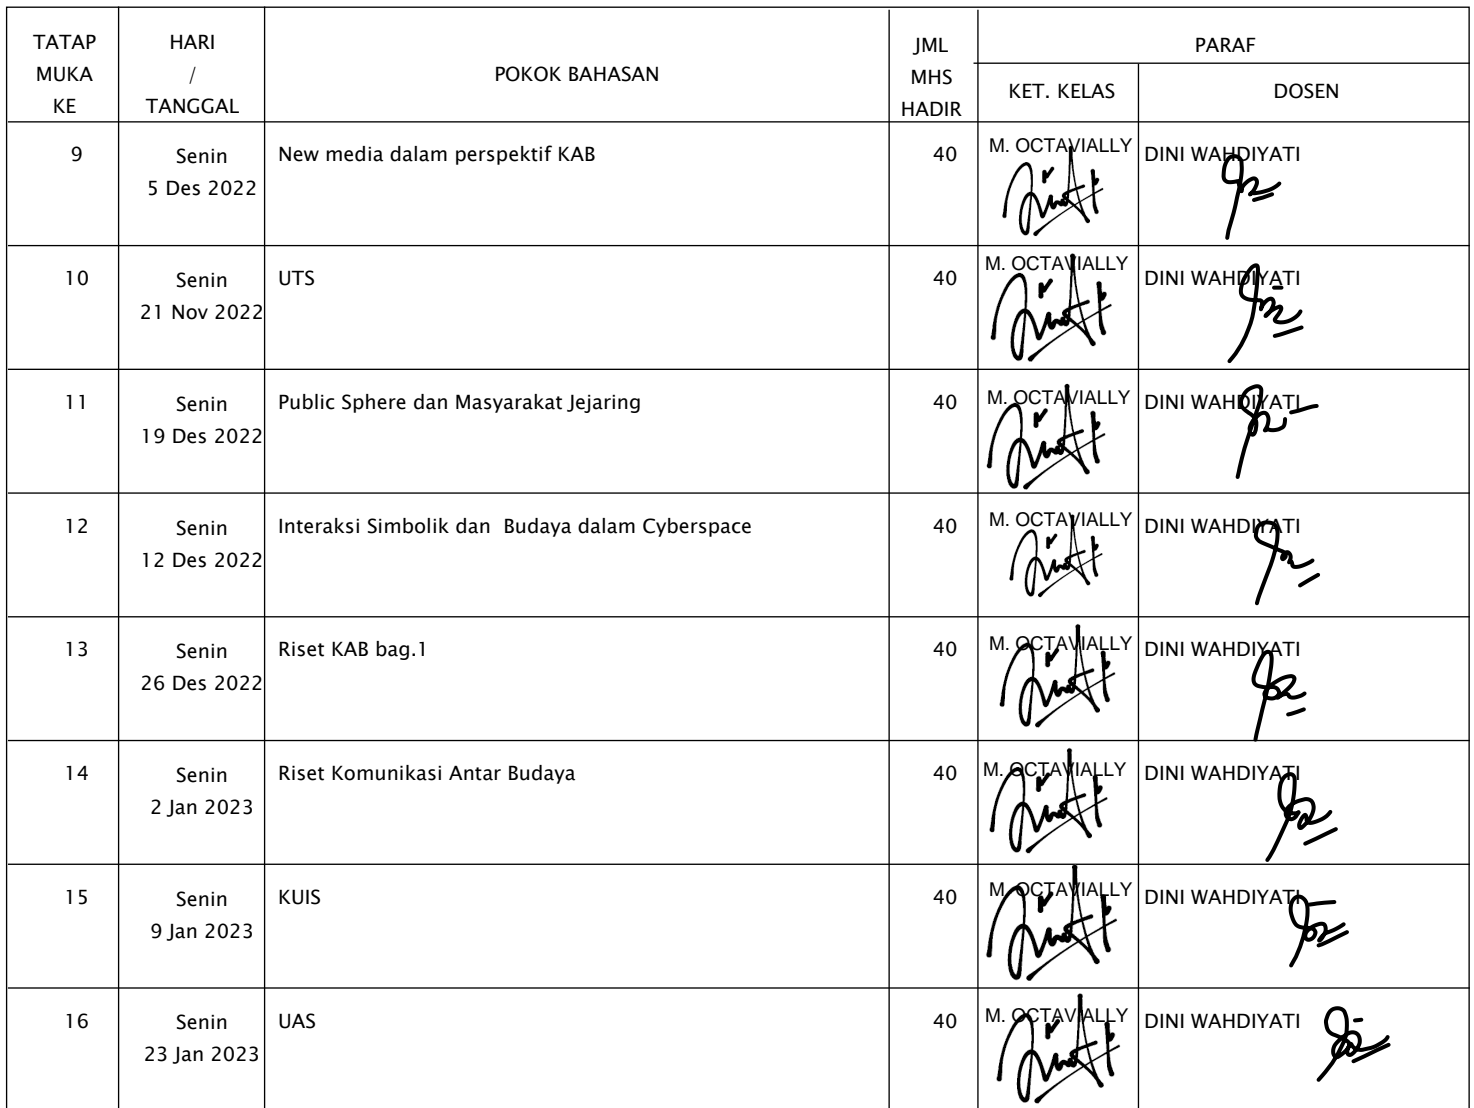 TATAP
MUKA
KE
HARI
/
TANGGAL
POKOK BAHASAN
JML
MHS
HADIR
PARAF
KET. KELAS
DOSEN
9
Senin
5 Des 2022
New media dalam perspektif KAB
40
M. OCTAVIALLY
DINI WAHDIYATI
10
Senin
21 Nov 2022
UTS
40
M. OCTAVIALLY
DINI WAHDIYATI
11
Senin
19 Des 2022
Public Sphere dan Masyarakat Jejaring
40
M. OCTAVIALLY
DINI WAHDIYATI
12
Senin
12 Des 2022
Interaksi Simbolik dan  Budaya dalam Cyberspace
40
M. OCTAVIALLY
DINI WAHDIYATI
13
Senin
26 Des 2022
Riset KAB bag.1
40
M. OCTAVIALLY
DINI WAHDIYATI
14
Senin
2 Jan 2023
Riset Komunikasi Antar Budaya
40
M. OCTAVIALLY
DINI WAHDIYATI
15
Senin
9 Jan 2023
KUIS
40
M. OCTAVIALLY
DINI WAHDIYATI
16
Senin
23 Jan 2023
UAS
40
M. OCTAVIALLY
DINI WAHDIYATI